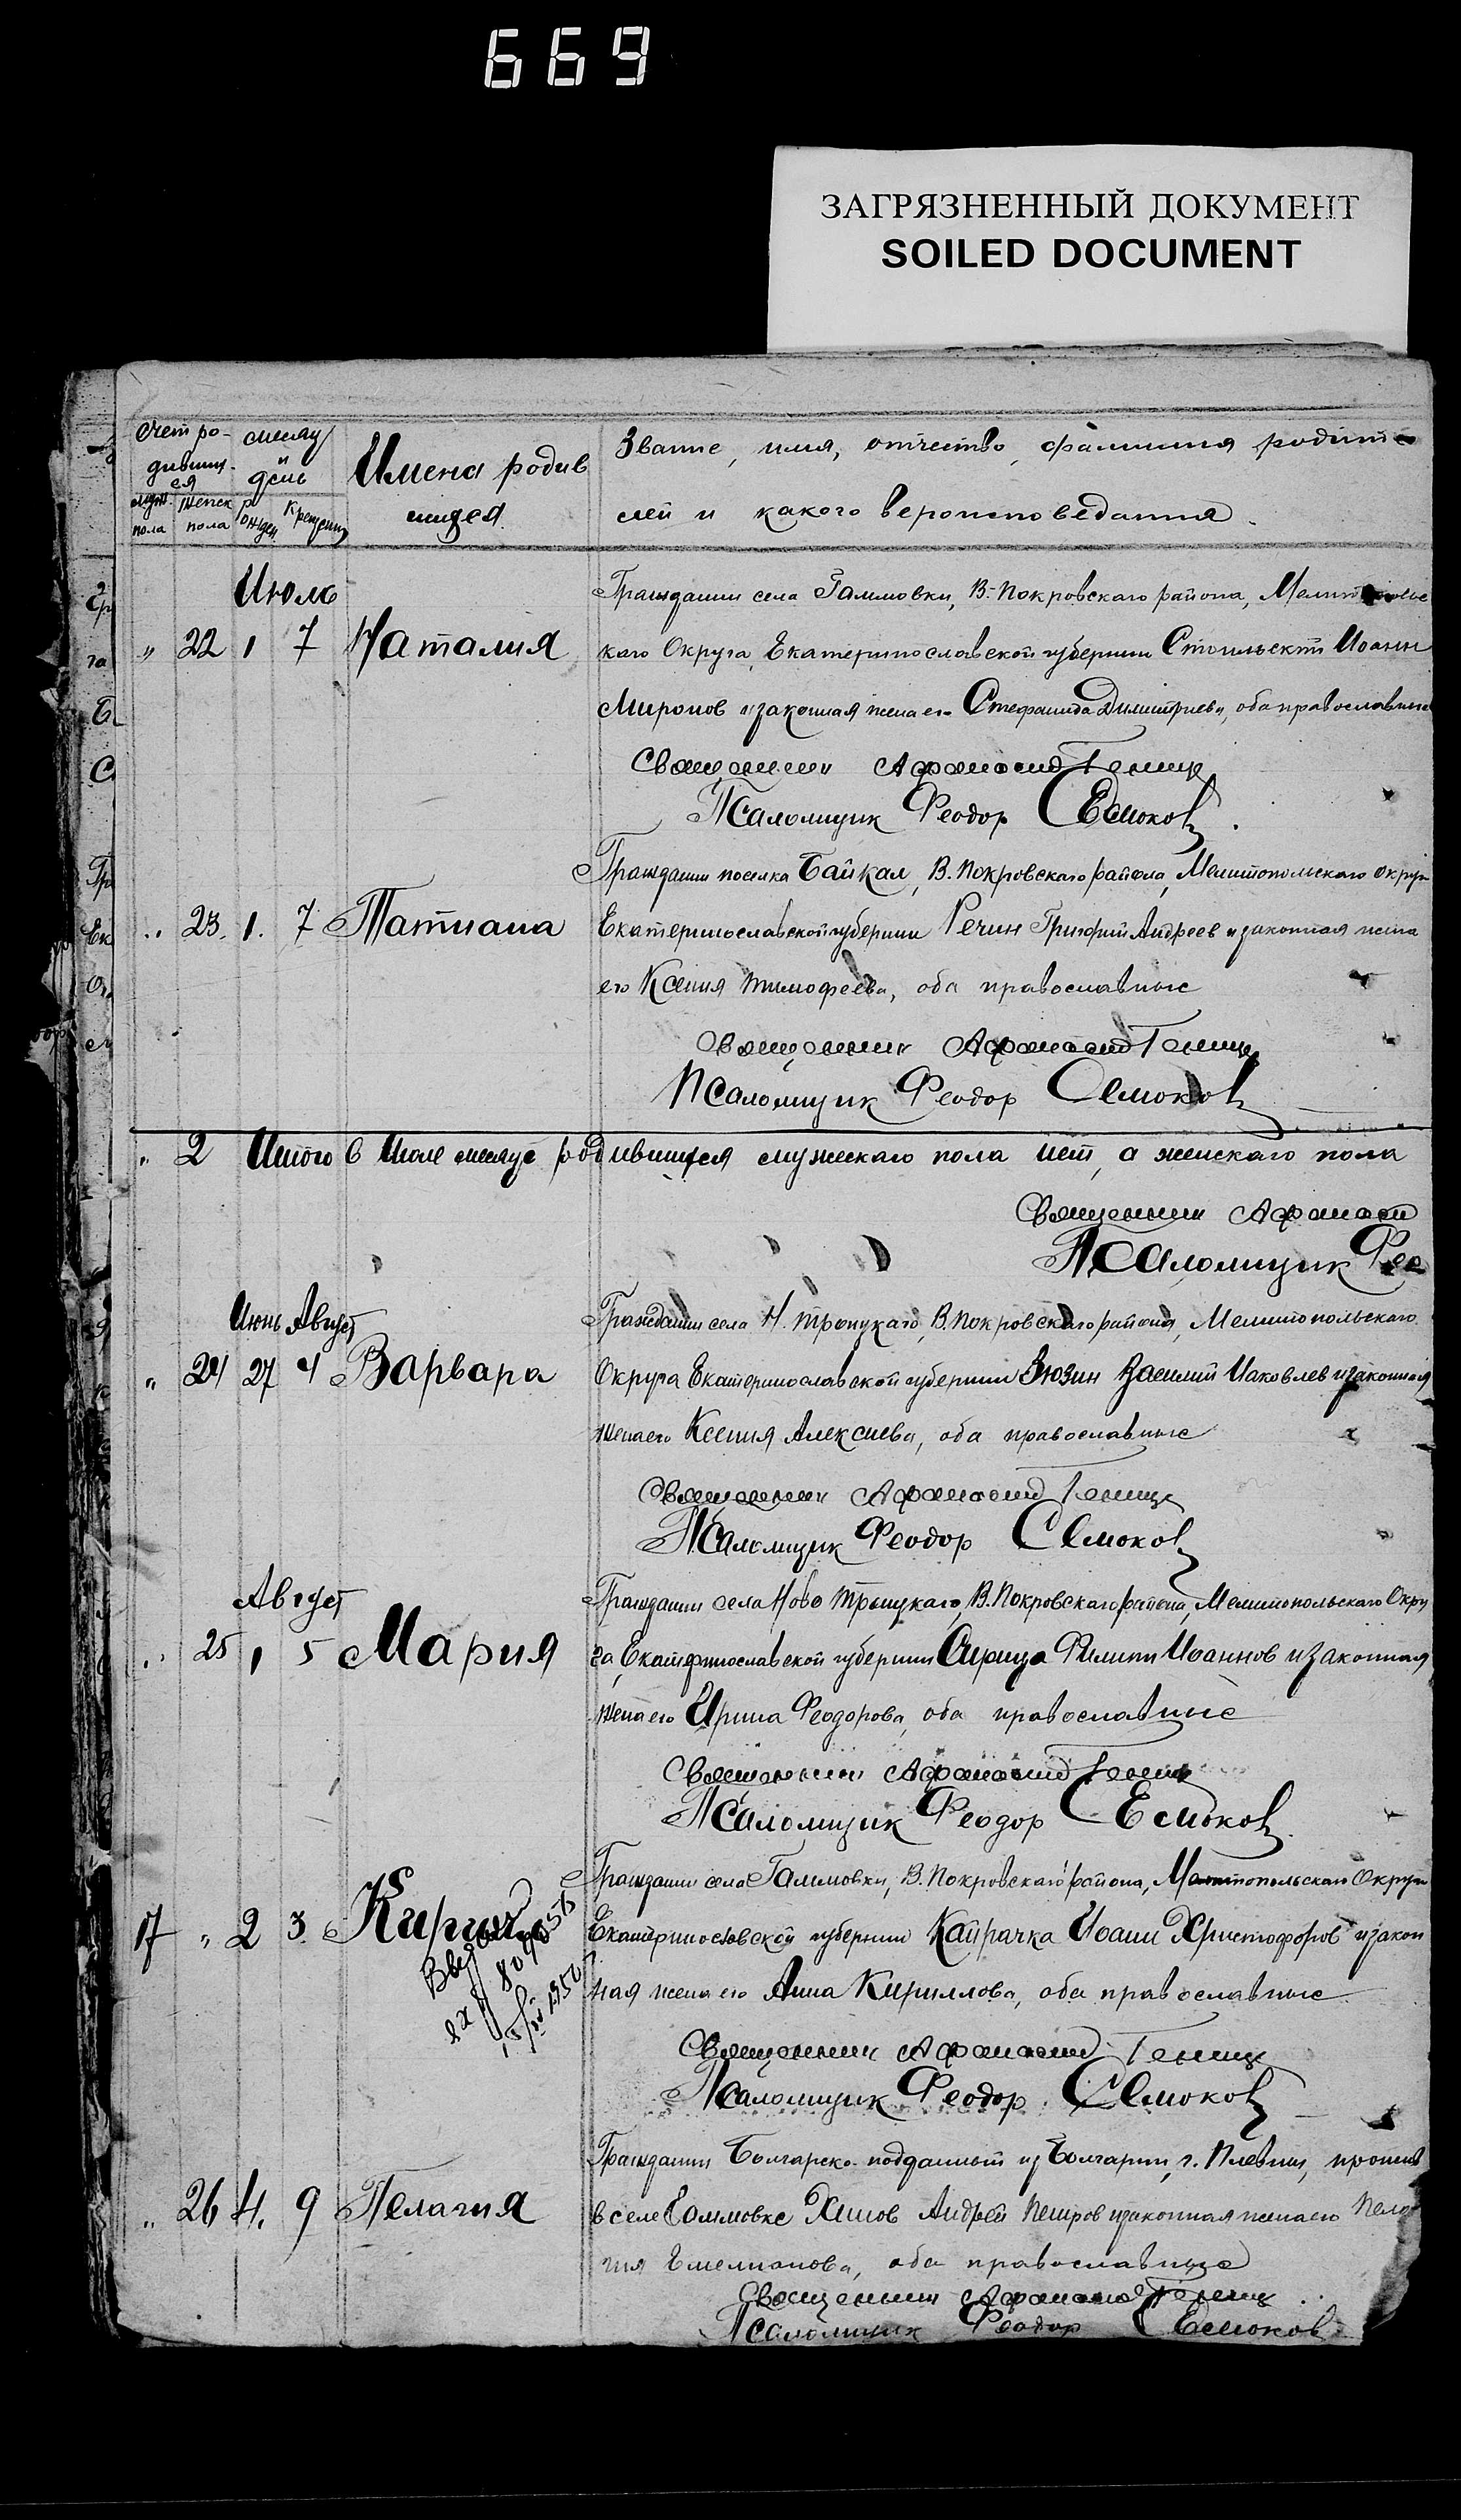 669
ЗАГРЯЗНЕННЫЙ ДОКУМЕНТ
SOILED DOCUMENT
Счет ро-
дивших-
ся
месяц
и
день
Имена родив
шихся
Звание, имя, отчество, фамилия родите
лей и какого вероисповедания.
муж.
пола
женск
пола
рожден
крещения
Июль
Гражданин села Гаммовки, В-Покровскаго района,
" 22 1 7 Наталия
каго Округа, Екатеринославской губернии Иоанн
Миронов и законная жена его Стефанида Димитриева, оба православные
Священник Афанасий
Псаломщик Феодор
Гражданин поселка Байкал, В. Покровскаго района, Мелитопольскаго округа
" 23. 1. 7 Татиана
Екатеринославской губернии Речин Григорий Андреев и законная жена
его Ксения Тимофеева, оба православные
Священник Афанасий
Псаломщик Феодор
" 2 Итого в Июле месяце родившихся мужескаго пола нет, а женскаго пола
Священник Афанасий
Псаломщик Фео
Июнь Август
Гражданин села Н. Троицкаго, В. Покровскаго района, Мелитопольскаго
" 24 27 4 Варвара
Округа Екатеринославской губернии Зюзин Василий Иаковлев и законная
жена его Ксения Алексиева, оба православные
Священник Афанасий
Псаломщик Феодор
Август
Гражданин села Ново Троицкаго, В. Покровскаго района, Мелитопольскаго Окру
" 25 1 5 Мария
га, Екатеринославской губернии Филипп Иоаннов и законная
жена его Ирина Феодорова, оба православные
Священник Афанасий
Псаломщик Феодор
Гражданин села Гаммовки, В. Покровскаго района, Мелитопольскаго Округа
17 " 2 3. Кирилл
Екатеринославской губернии Кайрачка Иоанн Христофоров и закон
ная жена его Анна Кириллова, оба православные
Священник Афанасий
Псаломщик Феодор
Гражданин Болгарско-подданный из Болгарии, г. Плевны, прожив
" 26 4. 9 Пелагия
в селе Гаммовке Андрей Петров и законная жена его Пела
гия Емелианова, оба православные
Священник Афанасий
Псаломщик Феодор